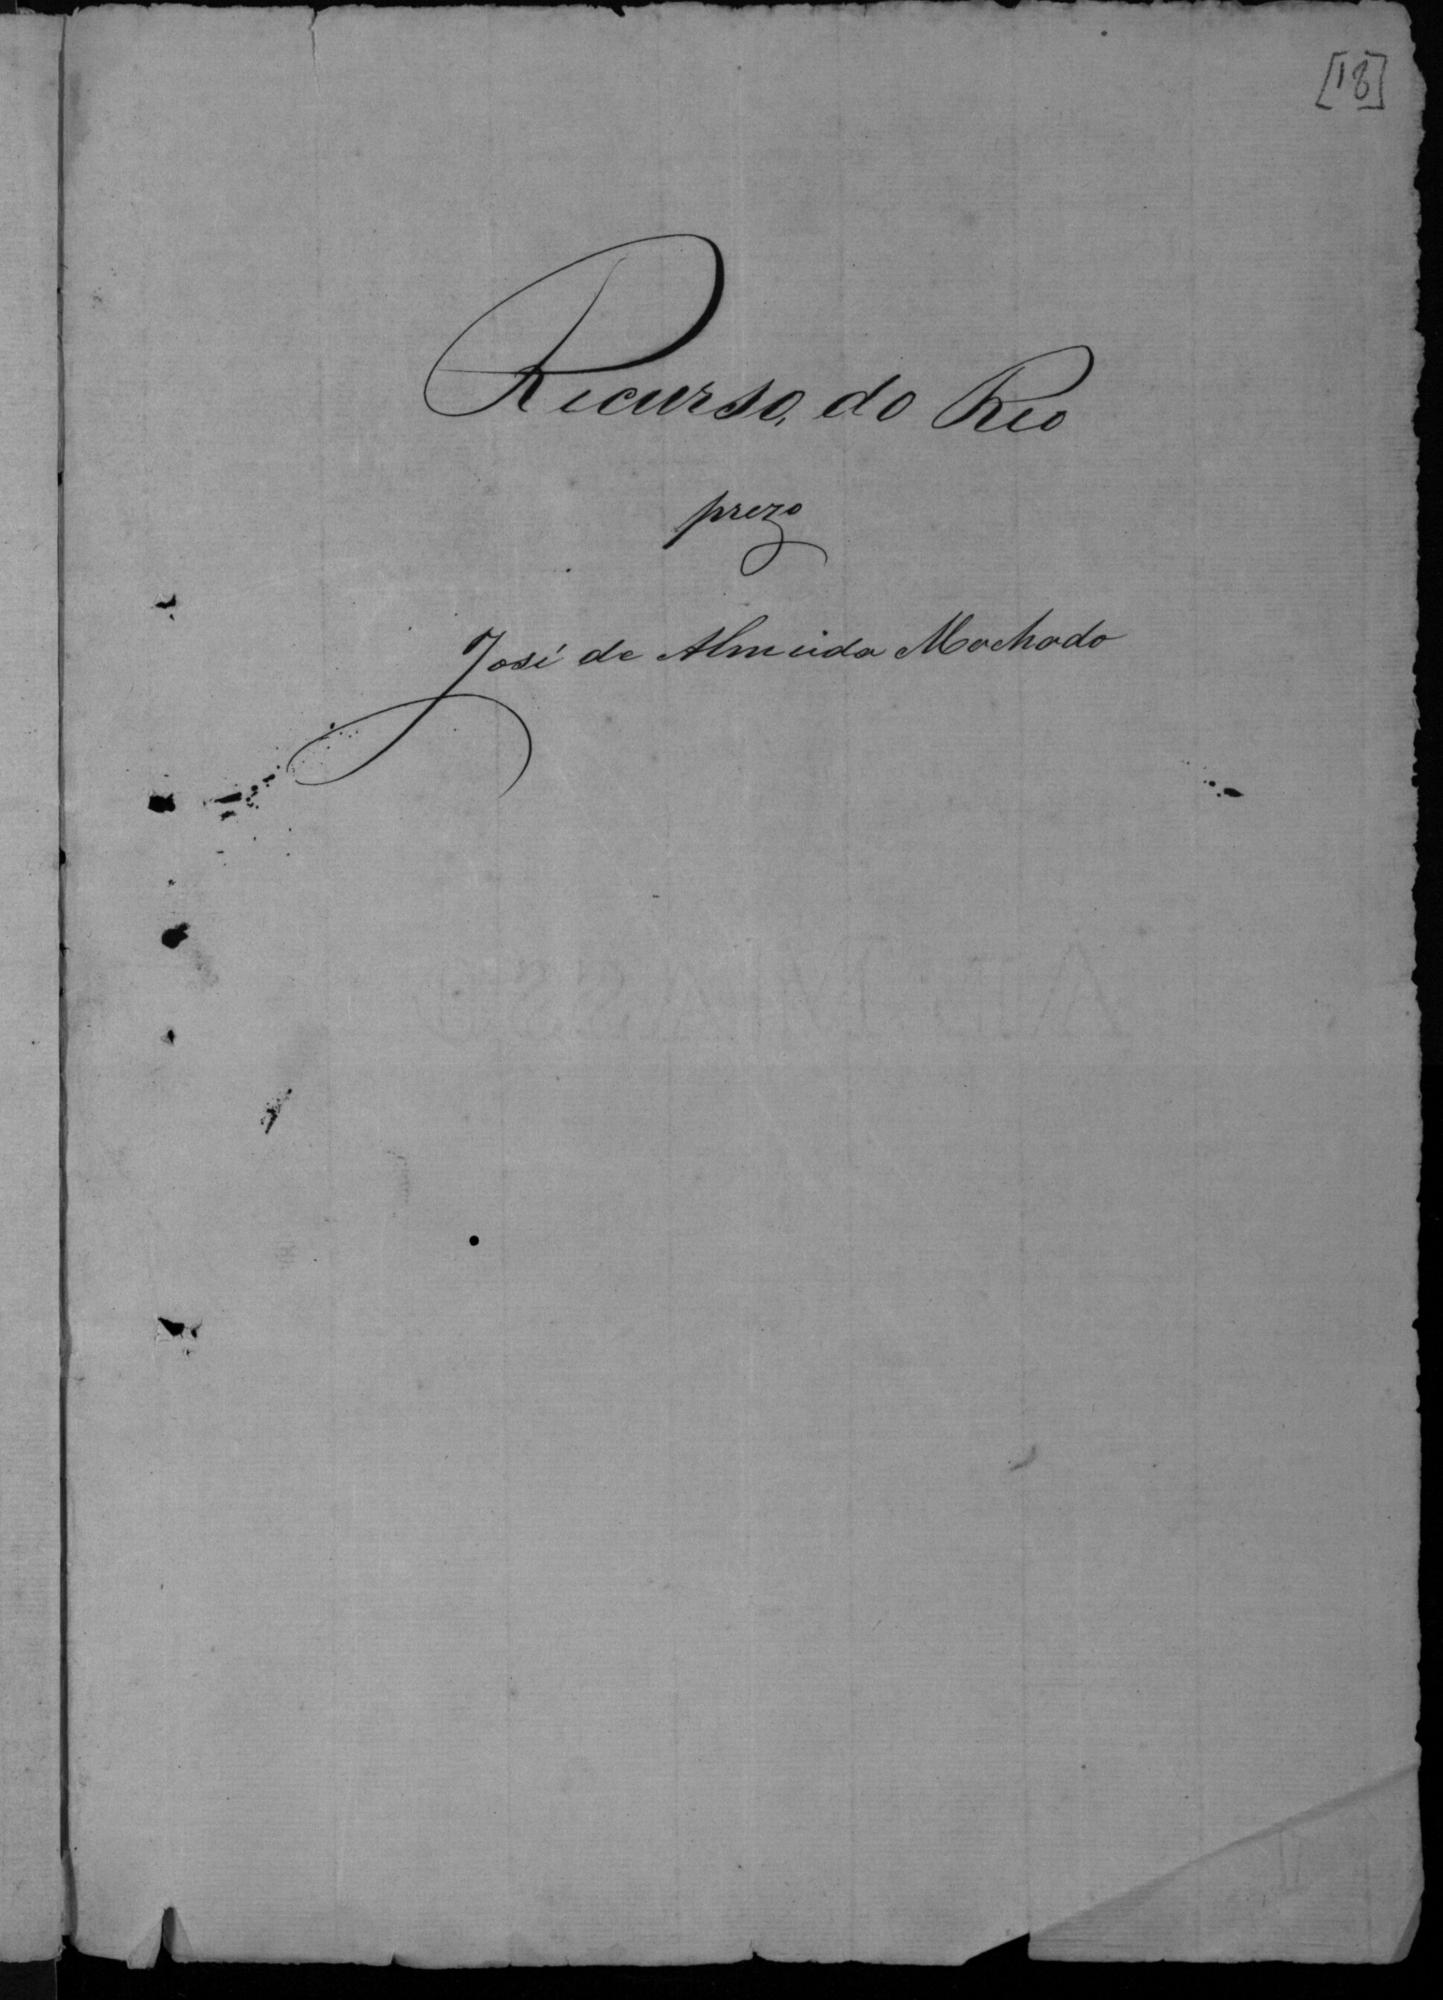 [18]
Recurso, do Reo
prezo
José de Almeida Machado